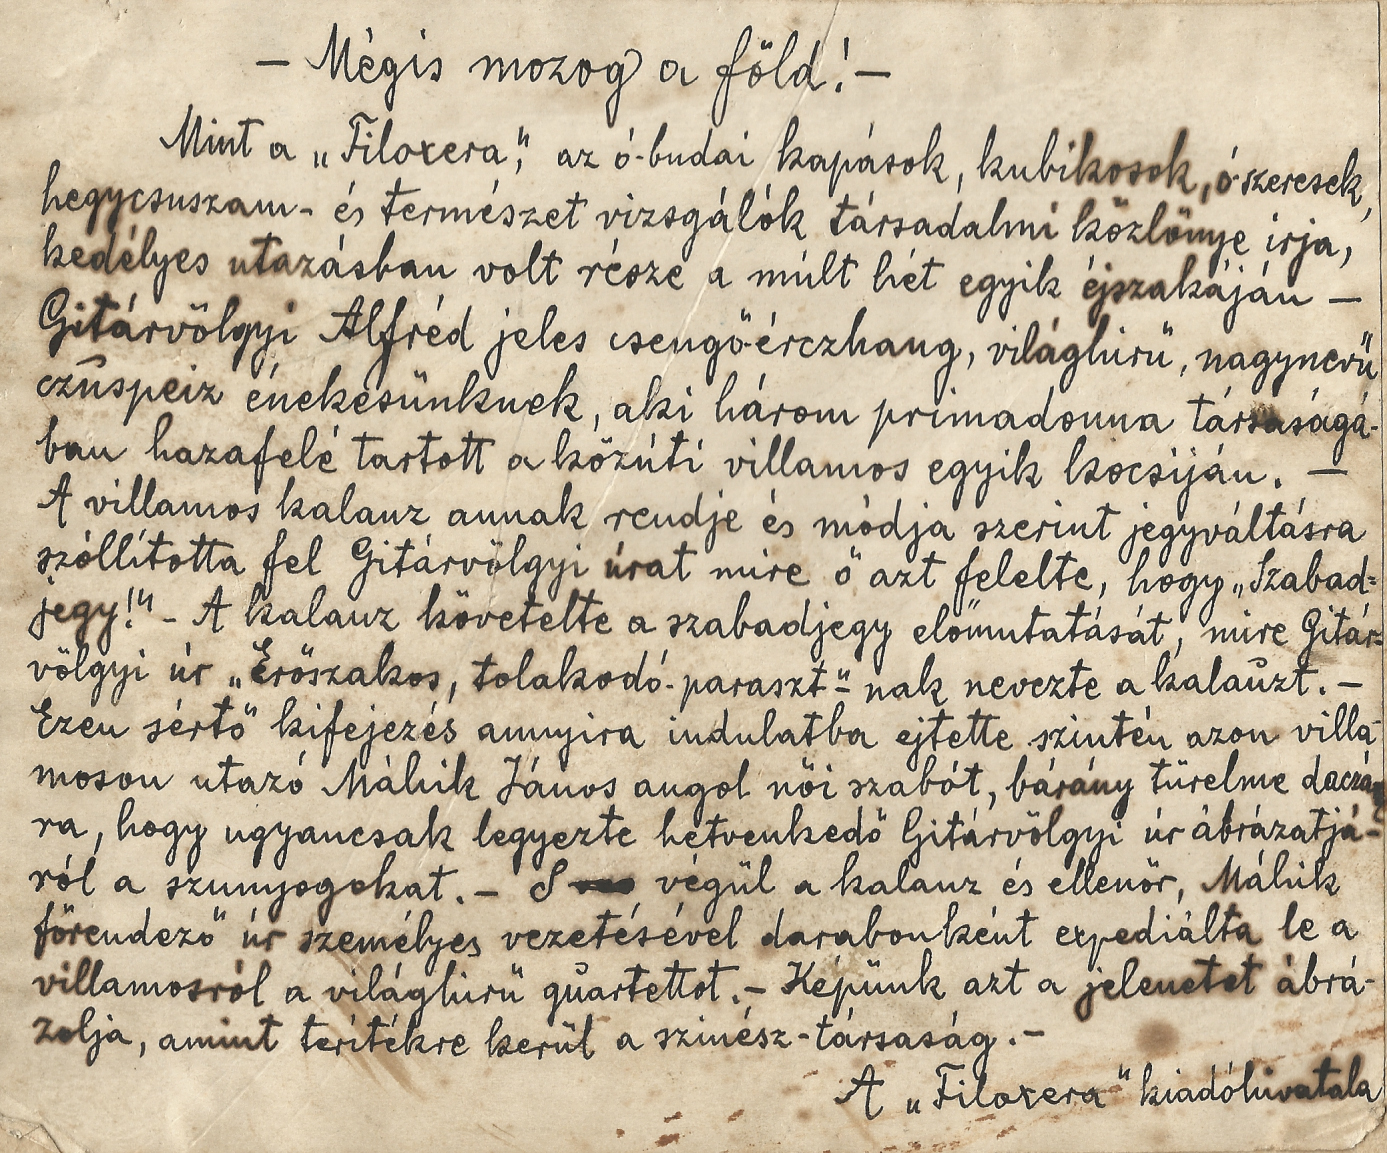 — Mégis mozog a föld! —
Mint a „Filoxera”, az ó-budai kapások, kubikosok, ó-szeresek,
hegycsuszam- és természet vizsgálók társadalmi közlönye irja,
kedélyes utazásban volt része a múlt hét egyik éjszakáján —
Gitárvölgyi Alfréd jeles csengő-érczhang, világhirü, nagynevü
czűspeiz énekesünknek, aki három primadonna társaságá-
ban hazafelé tartott a közúti villamos egyik kocsiján. —
A villamos kalauz annak rendje és módja szerint jegyváltásra
szóllította fel Gitárvölgyi úrat mire ő azt felelte, hogy „Szabad=
jegy!” - A kalauz követelte a szabadjegy előmutatását, mire Gitár=
völgyi úr „Erőszakos, tolakodó-paraszt”-nak nevezte a kalaűzt. —
Ezen sértő kifejezés annyira indulatba ejtette szintén azon villa-
moson utazó Málnik János angol női szabót, bárány türelme daczá-
ra, hogy ugyancsak legyezte hetvenkedő Gitárvölgyi úr ábrázatjá-
ról a szunyogokat. — S végül a kalauz és ellenőr, Málnik
főrendező úr személyes vezetésével darabonként expediálta le a
villamosról a világhirü quartettot. — Képünk azt a jelenetet ábrá-
zolja, amint terítékre kerül a szinész-társaság. —
A „Filoxera” kiadóhivatala